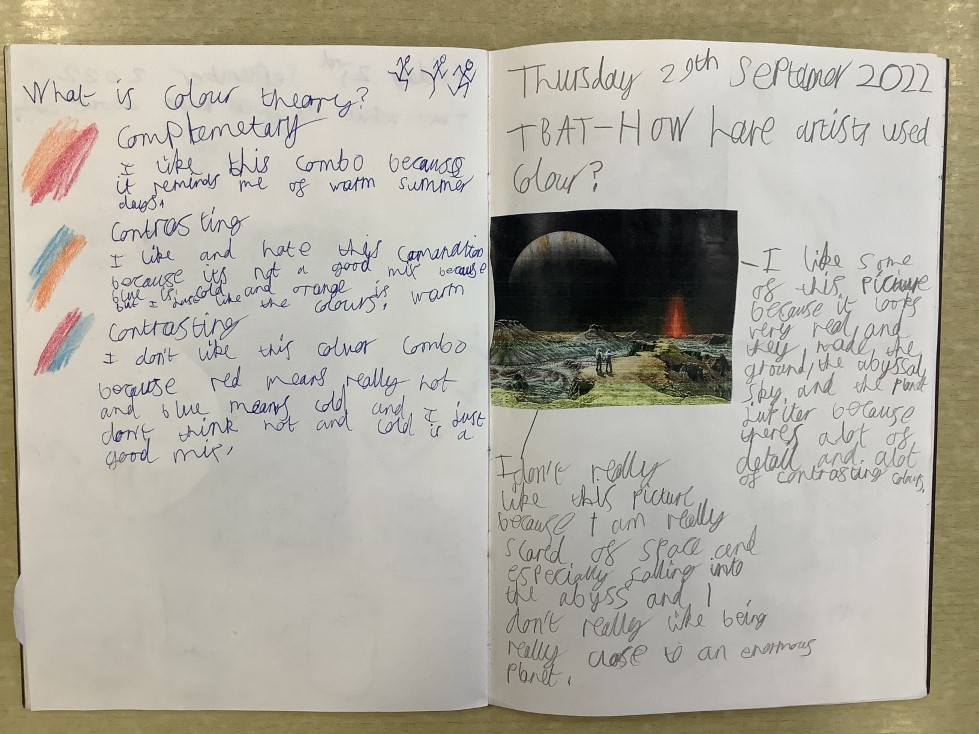 What is colour theory?
Complemetary
I like this combo because
it reminds me of warm summer
days.
Contrasting
I like and hate this
because its not a good mix because
blue is cold and orange is warm
but I just like the colours.
Contrasting
I don't like this colour combo
because red means really hot
and blue means cold and I just
don't think hot and cold is a
good mix.
Thursday 29th September 2022
TBAT-HOW have artists used
Colour?
-I like some
of this picture
because it looks
very red, and
they made the
ground, the abyssal
sky, and the planet
Jupiter because
theres alot of
detail and alot
of contrasting colours.
I don't really
like this picture
because I am really
scared of space and
especially falling into
the abyss and I
don't really like being
really close to an enormous
planet.